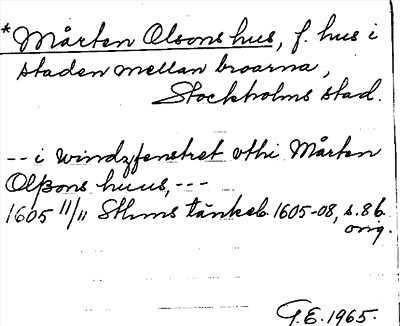 *Mårten Olsons hus, f. hus i
staden mellan broarna,
Stockholms stad.
-- i windzfenstret vthi Mårten
Olßons huus, ---
1605 11/11 Sthms tänkeb. 1605-08, s. 86
orig.
G.E. 1965.